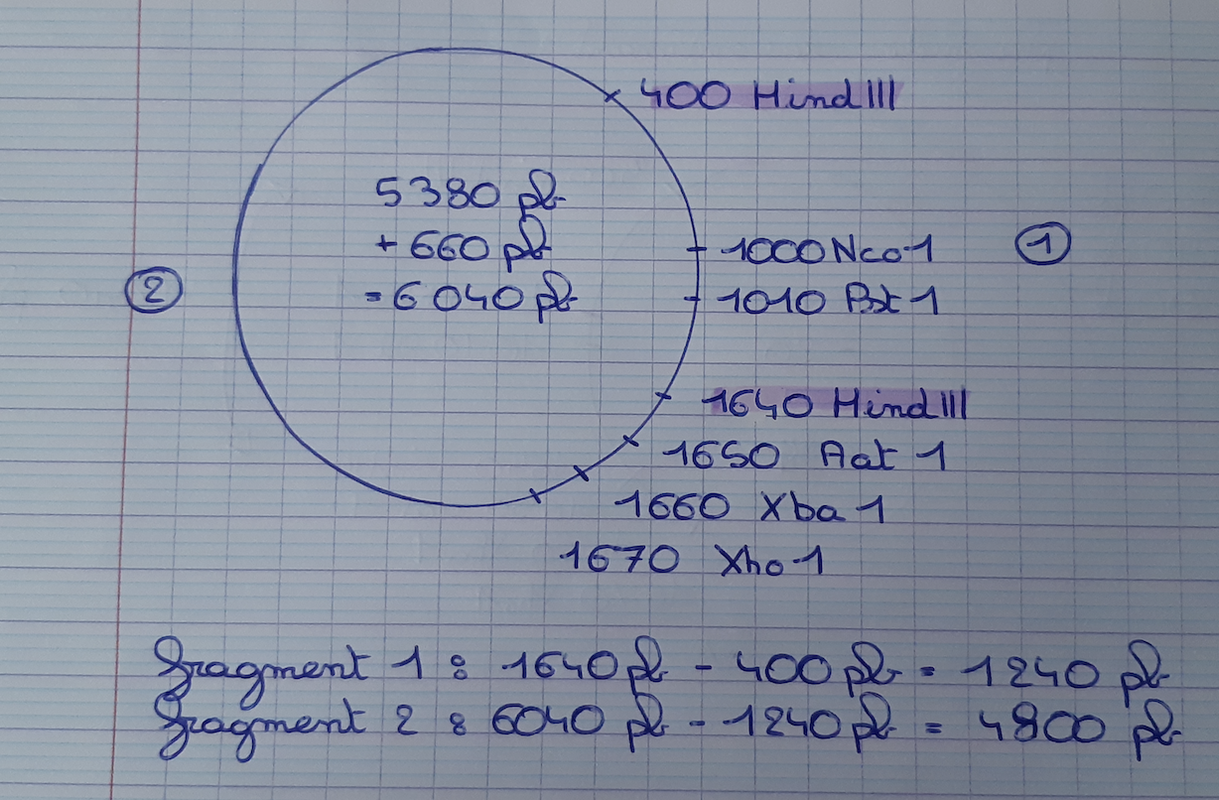 400 HindIII
5380 pb
+ 660 pb
= 6040 pb
1000 Nco1
1
1010 Pst 1
2
1640 HindIII
1650 Aat 1
1660 Xba 1
1670 Xho 1
Fragment 1 : 1640 pb - 400 pb = 1240 pb
Fragment 2 : 6040 pb - 1240 pb = 4800 pb